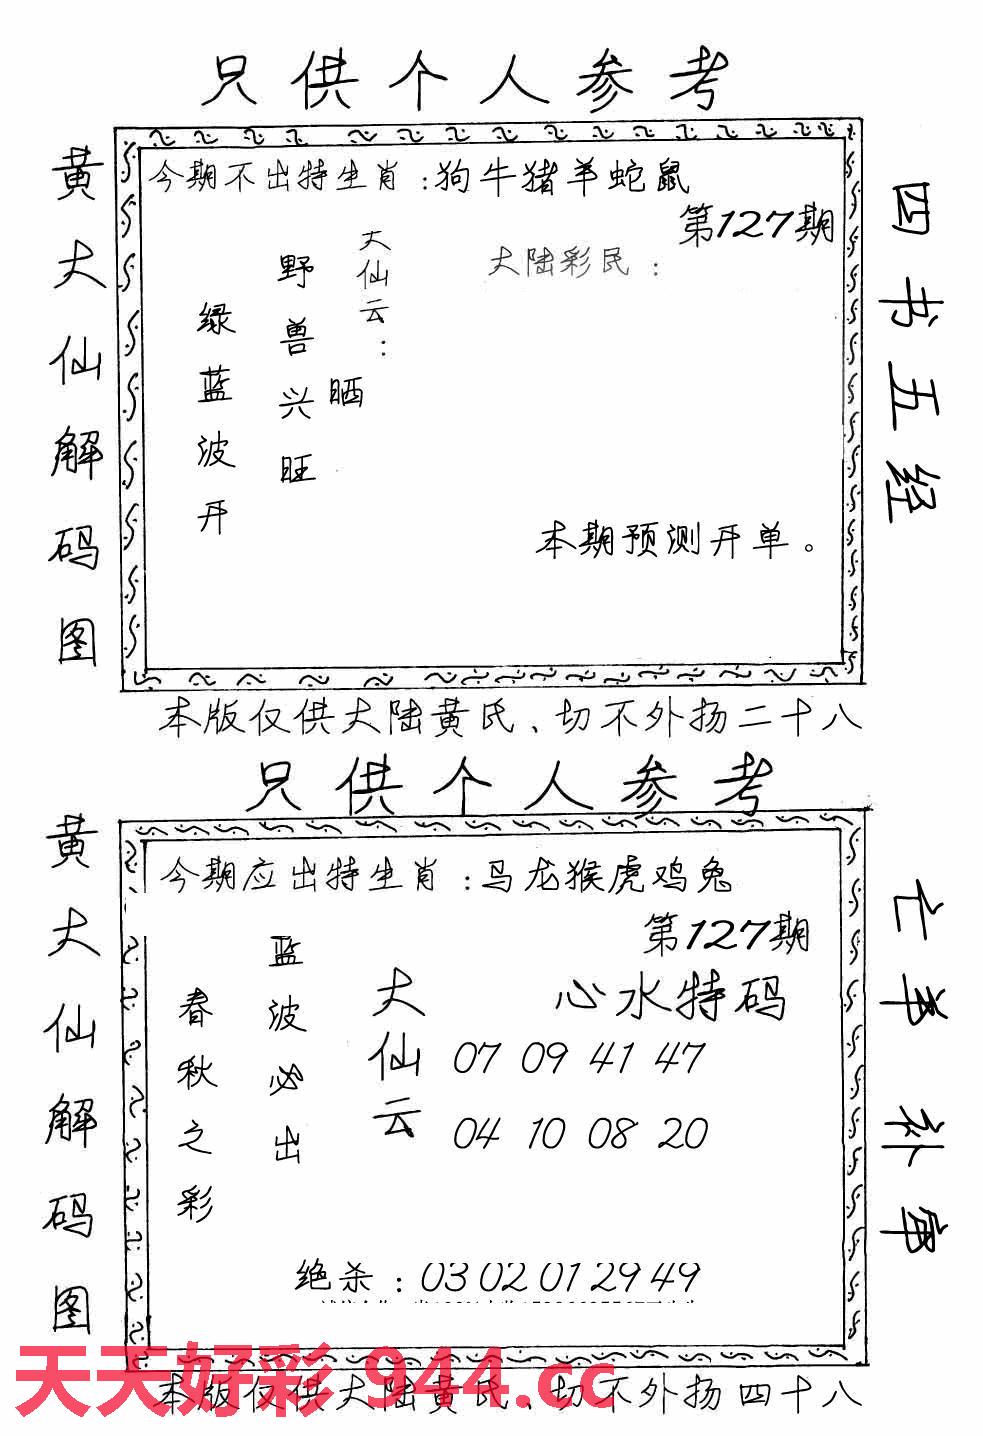 只供个人参考
黄大仙解码图
今期不出特生肖：狗牛猪羊蛇鼠
第127期
大陆彩民：
大仙云：
野兽兴旺
晒
绿蓝波开
本期预测开单。
四书五经
本版仅供大陆黄氏、切不外扬二十八
只供个人参考
黄大仙解码图
今期应出特生肖：马龙猴虎鸡兔
第127期
心水特码
大仙云
07 09 41 47
04 10 08 20
蓝波必出
春秋之彩
绝杀：03 02 01 29 49
亡羊补牢
天天好彩 944.cc
本版仅供大陆黄氏、切不外扬四十八